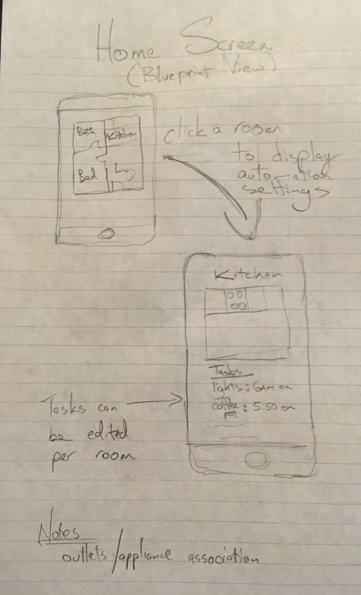 Home Screen
(Blueprint View)
Bath Kitchen
Bed Liv
click a room
to display
automation
settings
Kitchen
Tasks
lights: 6am on
coffee: 5:50 on
pot
Tasks can
be edited
per room
Notes
outlets/appliance association